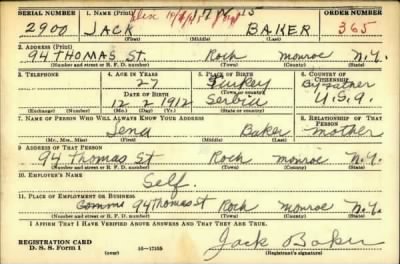 SERIAL NUMBER 1. NAME (Print) ORDER NUMBER
2900 JACK BAKER 365
(First) (Middle) (Last)
2. ADDRESS (Print)
94 THOMAS St. Roch Monroe N.Y.
(Number and street or R. F. D. number) (Town) (County) (State)
3. TELEPHONE 4. AGE IN YEARS 5. PLACE OF BIRTH 6. COUNTRY OF CITIZENSHIP
27 Turkey By father
DATE OF BIRTH (Town or county)
12 2 1912 Serbia U.S.A.
(Exchange) (Number) (Mo.) (Day) (Yr.) (State or country)
7. NAME OF PERSON WHO WILL ALWAYS KNOW YOUR ADDRESS 8. RELATIONSHIP OF THAT PERSON
Jena Baker mother
(Mr., Mrs., Miss) (First) (Middle) (Last)
9. ADDRESS OF THAT PERSON
94 Thomas St Roch monroe N.Y.
(Number and street or R. F. D. number) (Town) (County) (State)
10. EMPLOYER'S NAME
Self.
11. PLACE OF EMPLOYMENT OR BUSINESS
94 Thomas St Roch Monroe N.Y.
(Number and street or R. F. D. number) (Town) (County) (State)
I AFFIRM THAT I HAVE VERIFIED ABOVE ANSWERS AND THAT THEY ARE TRUE.
REGISTRATION CARD
D. S. S. Form 1 (over) 16—17105 Jack Baker
(Registrant's signature)